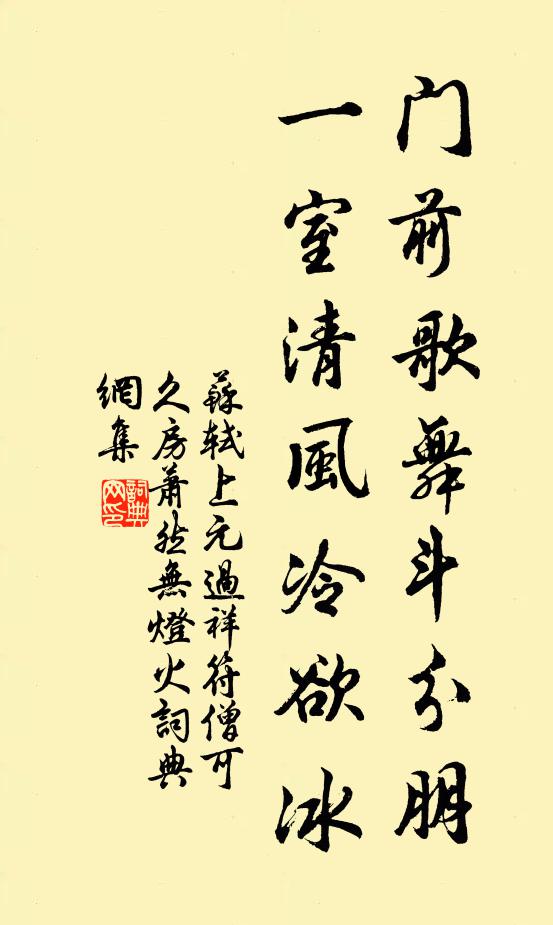 门前歌舞斗分朋
一室清風冷欲冰
蘇軾上元過祥符僧可
久房蕭然無燈火詞典
網集
詞典
网印